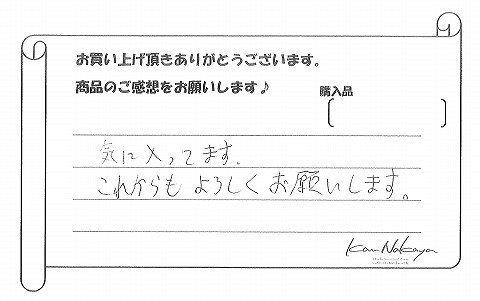 お買い上げ頂きありがとうございます。
商品のご感想をお願いします♪
購入品
気に入ってます.
これからもよろしくお願いします。
Kan Nakaya